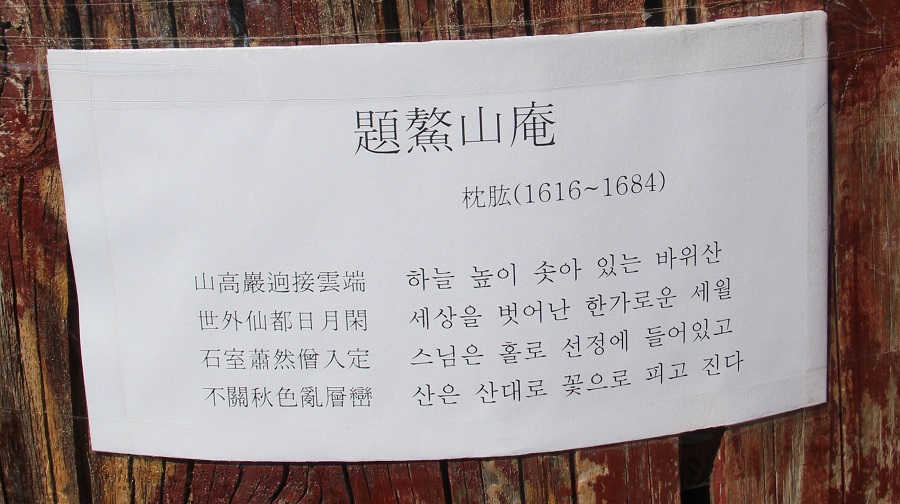 題鰲山庵
枕肱(1616~1684)
山高巖逈接雲端 하늘 높이 솟아 있는 바위산
世外仙都日月閑 세상을 벗어난 한가로운 세월
石室蕭然僧入定 스님은 홀로 선정에 들어있고
不關秋色亂層巒 산은 산대로 꽃으로 피고 진다